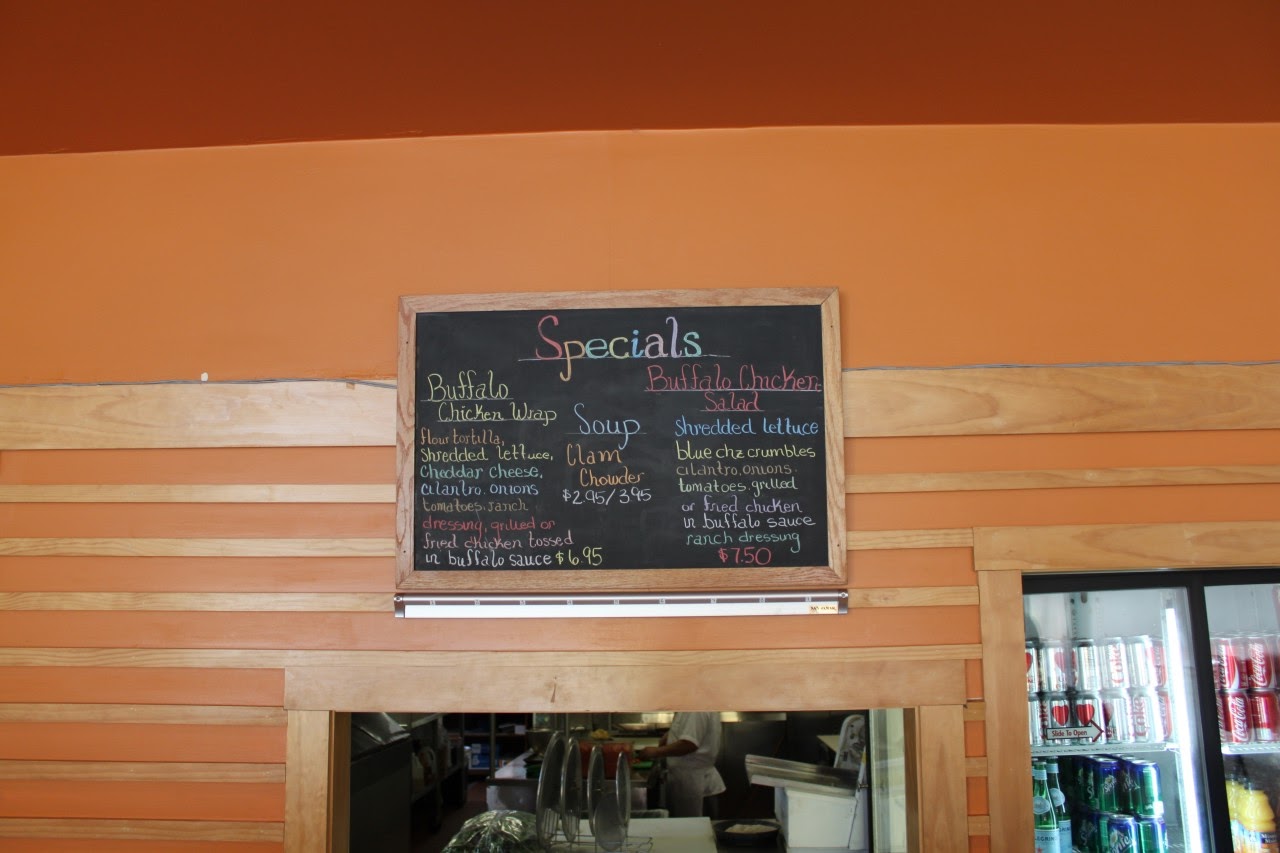 Specials
Buffalo
Chicken Wrap
flour tortilla,
shredded lettuce,
cheddar cheese,
cilantro, onions
tomatoes, ranch
dressing, grilled or
fried chicken tossed
in buffalo sauce $6.95
Soup
Clam
Chowder
$2.95/3.95
Buffalo Chicken
Salad
shredded lettuce
blue chz crumbles
cilantro, onions.
tomatoes, grilled
or fried chicken
in buffalo sauce
ranch dressing
$7.50
Slide To Open
Coke
Coca-Cola